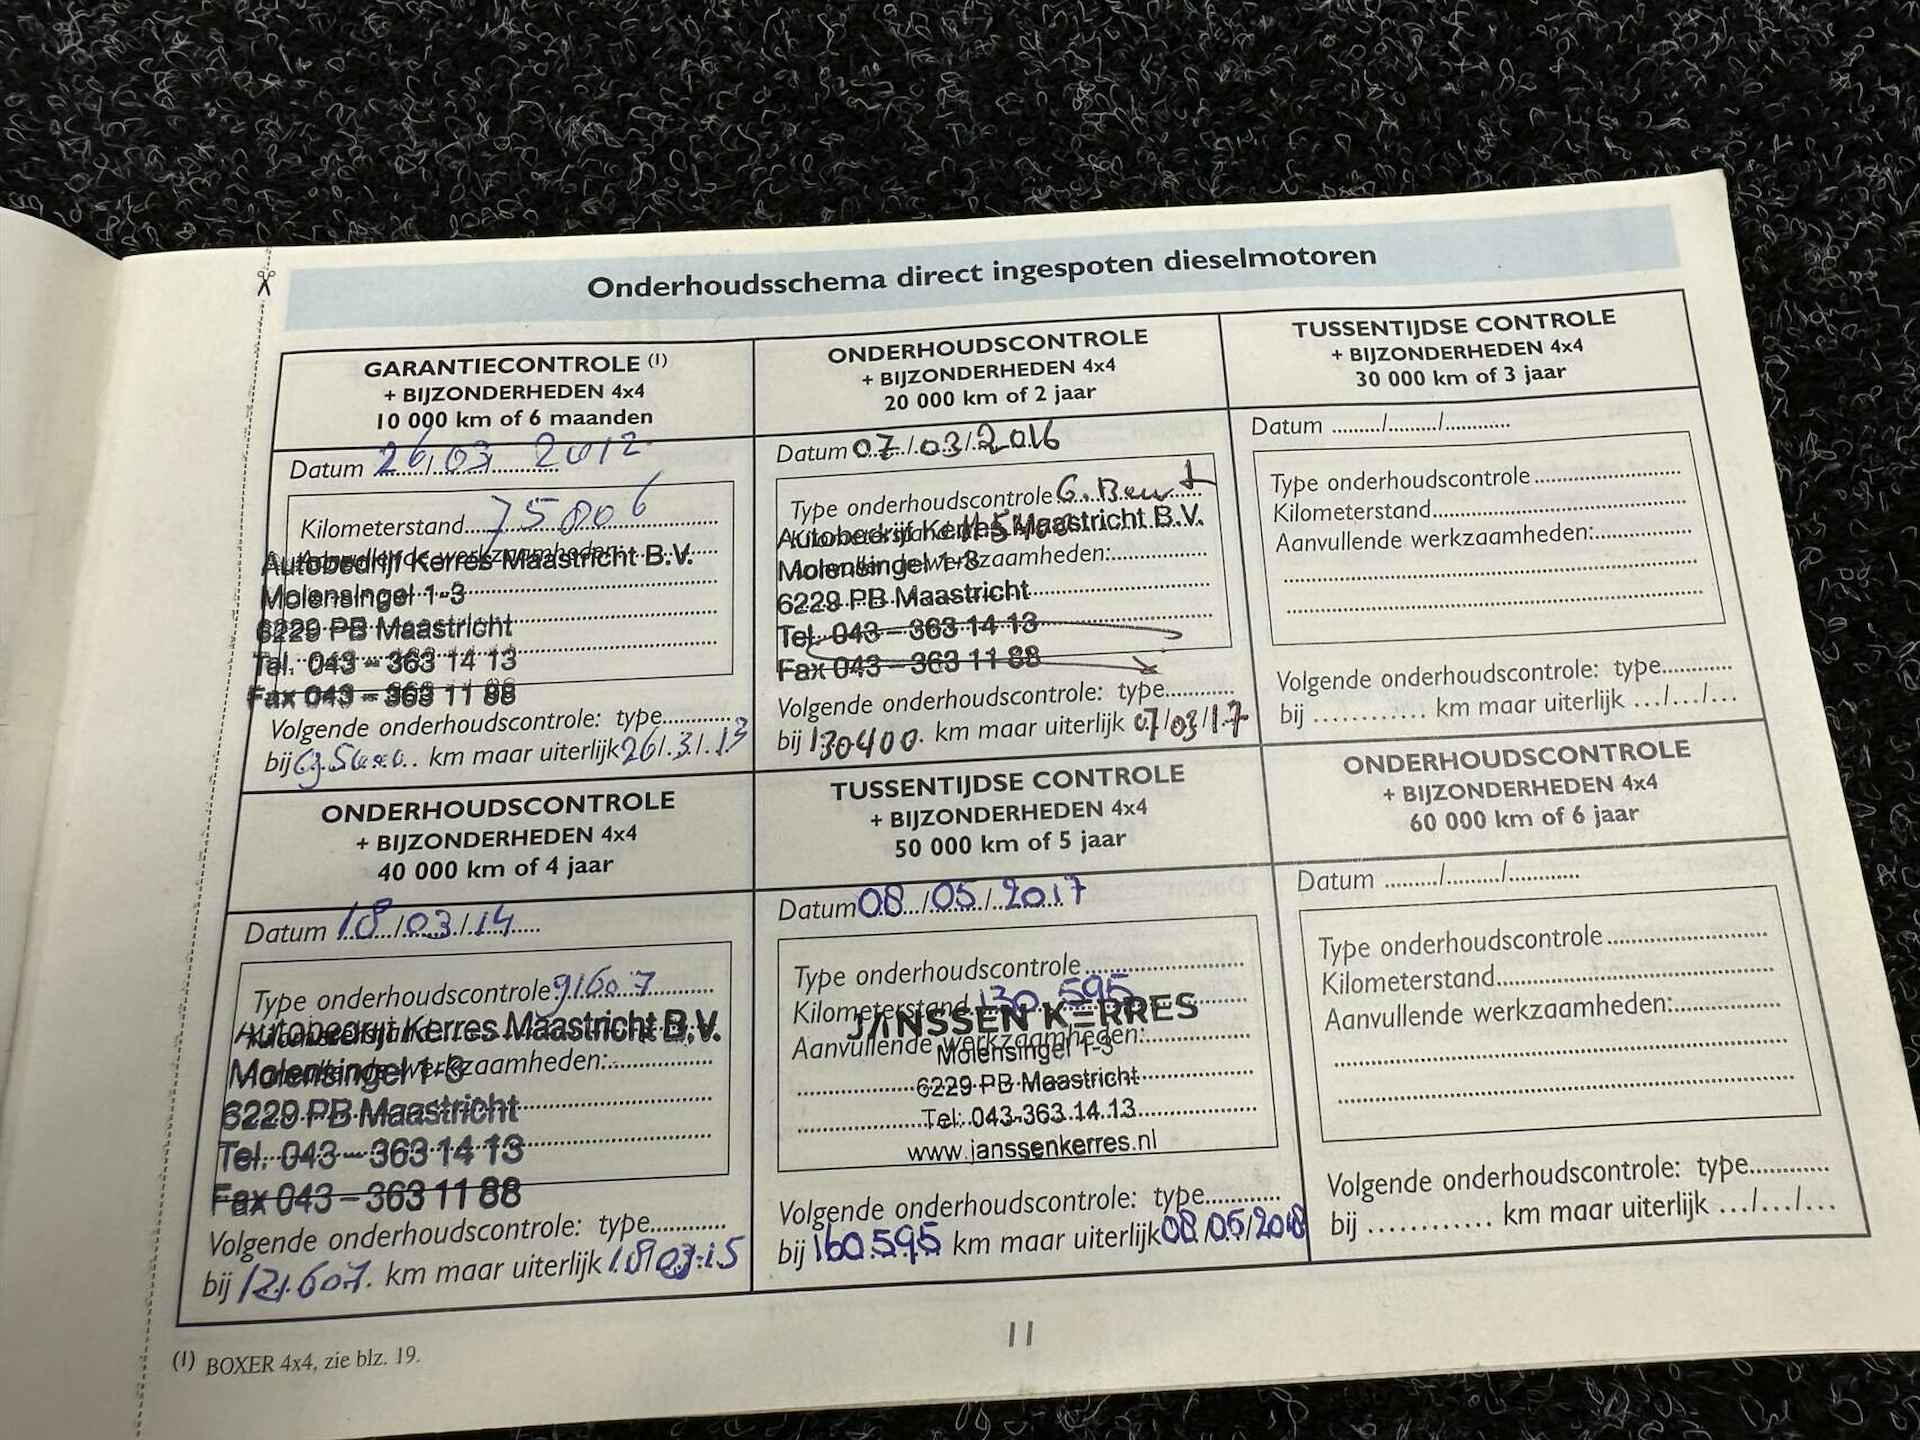 Onderhoudsschema direct ingespoten dieselmotoren
GARANTIECONTROLE (1)
+ BIJZONDERHEDEN 4x4
10 000 km of 6 maanden
Datum 26/03 2012
Kilometerstand 75806
Aanvullende werkzaamheden:
Autobedrijf Kerres Maastricht B.V.
Molensingel 1-3
6229 PB Maastricht
Tel. 043 - 363 14 13
Fax 043 - 363 11 88
Volgende onderhoudscontrole: type
bij km maar uiterlijk 26/.3/.13
ONDERHOUDSCONTROLE
+ BIJZONDERHEDEN 4x4
20 000 km of 2 jaar
Datum 07/03/2016
Type onderhoudscontrole
Kilometerstand
Autobedrijf Kerres Maastricht B.V.
Aanvullende werkzaamheden:
Molensingel 1-3
6229 PB Maastricht
Tel. 043 - 363 14 13
Fax 043 - 363 11 88
Volgende onderhoudscontrole: type
bij 130400 km maar uiterlijk 07/03/17
TUSSENTIJDSE CONTROLE
+ BIJZONDERHEDEN 4x4
30 000 km of 3 jaar
Datum ........./........./...........
Type onderhoudscontrole
Kilometerstand
Aanvullende werkzaamheden:
Volgende onderhoudscontrole: type
bij ............ km maar uiterlijk .../.../...
ONDERHOUDSCONTROLE
+ BIJZONDERHEDEN 4x4
40 000 km of 4 jaar
Datum 18/03/14
Type onderhoudscontrole 91607
Kilometerstand
Autobedrijf Kerres Maastricht B.V.
Aanvullende werkzaamheden:
Molensingel 1-3
6229 PB Maastricht
Tel. 043 - 363 14 13
Fax 043 - 363 11 88
Volgende onderhoudscontrole: type
bij 121.607 km maar uiterlijk 18/03/15
TUSSENTIJDSE CONTROLE
+ BIJZONDERHEDEN 4x4
50 000 km of 5 jaar
Datum 08/05/2017
Type onderhoudscontrole
Kilometerstand 130.595
JANSSEN KERRES
Aanvullende werkzaamheden:
Molensingel 1-3
6229 PB Maastricht
Tel: 043-363 14 13
www.janssenkerres.nl
Volgende onderhoudscontrole: type
bij 160.595 km maar uiterlijk 08/05/2018
ONDERHOUDSCONTROLE
+ BIJZONDERHEDEN 4x4
60 000 km of 6 jaar
Datum ........./........./...........
Type onderhoudscontrole
Kilometerstand
Aanvullende werkzaamheden:
Volgende onderhoudscontrole: type
bij ............ km maar uiterlijk .../.../...
(1) BOXER 4x4, zie blz. 19.
11